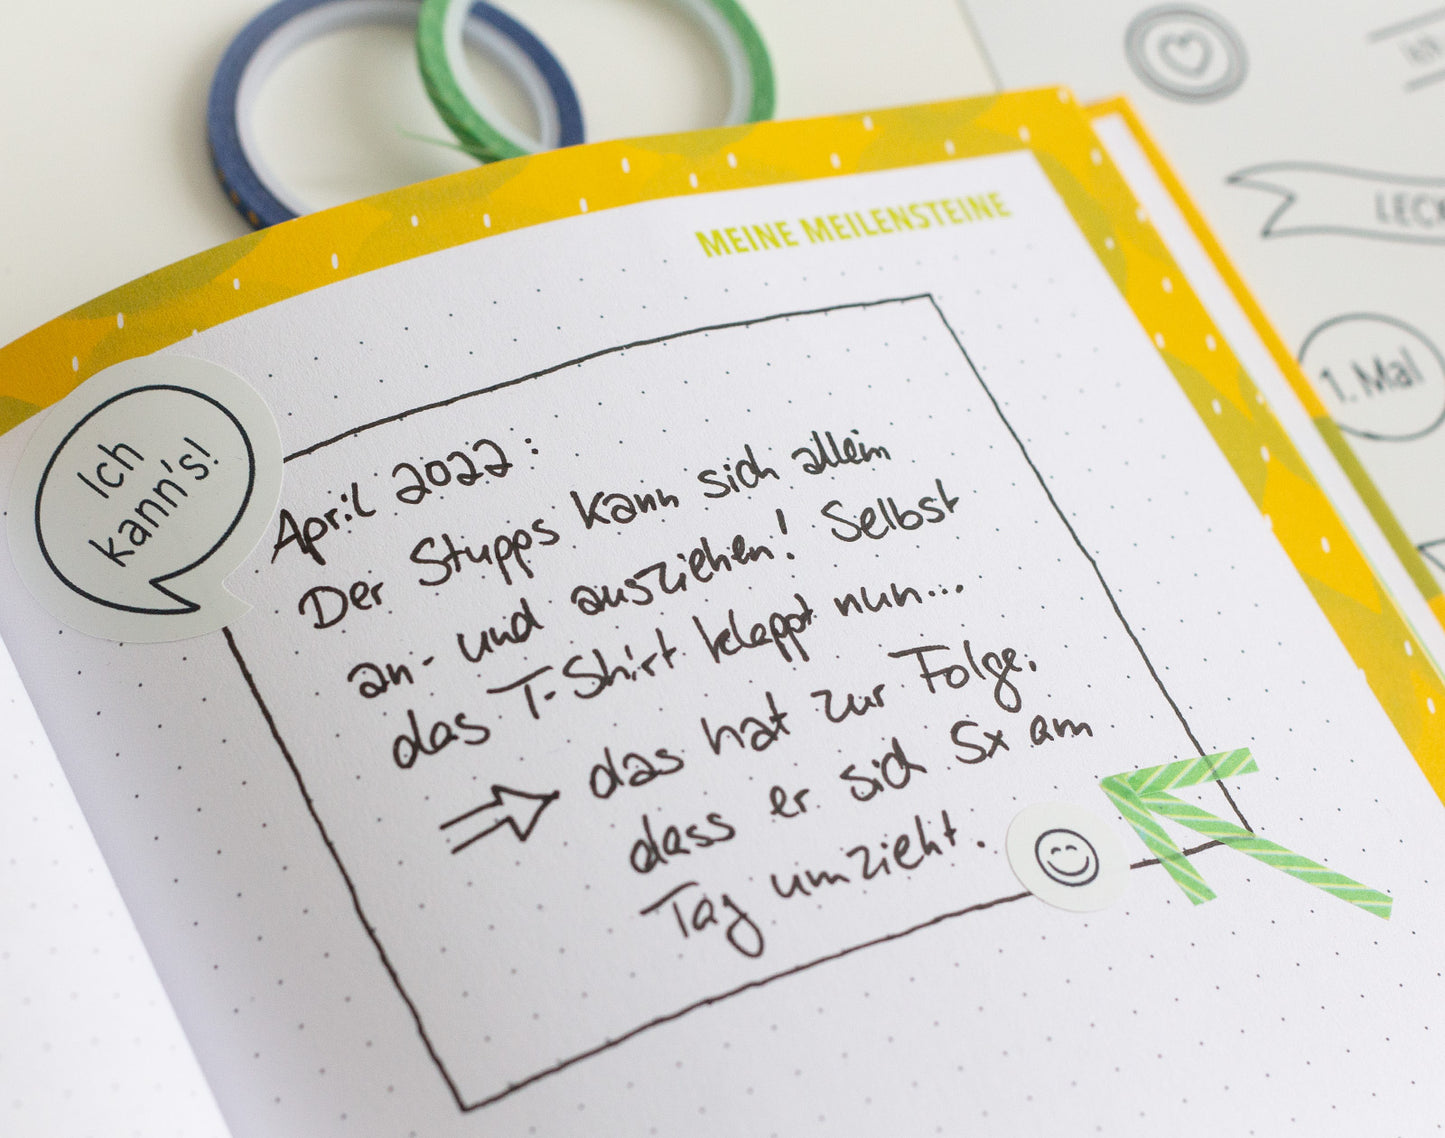 MEINE MEILENSTEINE
Ich
kann's!
April 2022:
Der Stupps kann sich allein
an- und ausziehen! Selbst
das T-Shirt klappt nun...
das hat zur Folge,
dass er sich 5x am
Tag umzieht.
1. Mal